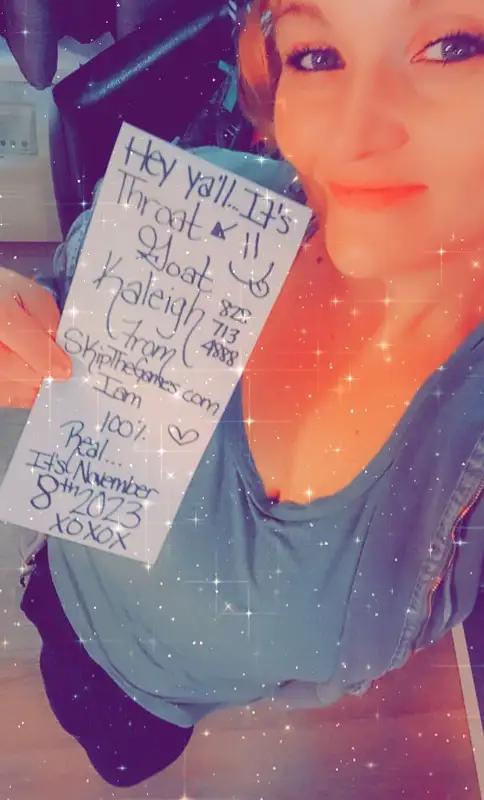 Hey Ya'll... It's
Throat
Goat
Kaleigh 828
713
(From 4888
SkipTheGames.com
I am
100%
Real...
It's November
8th 2023
XOXOX